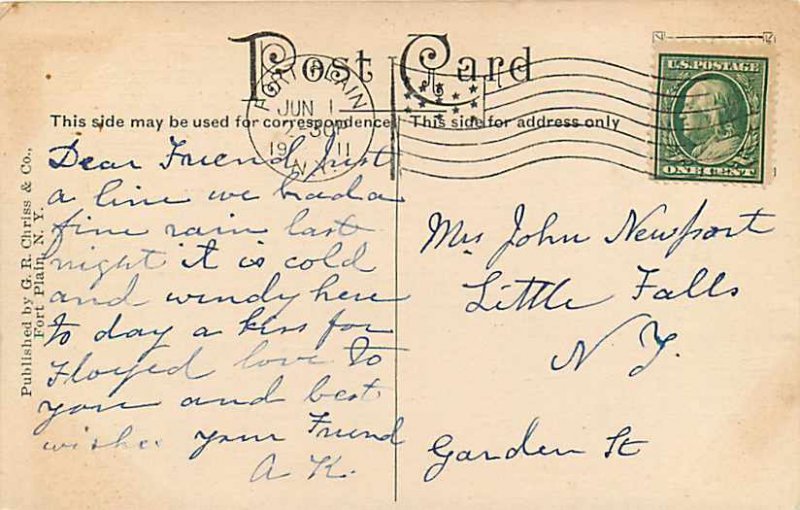 Post Card
FORT PLAIN
JUN 1
2-30P
1911
N.Y.
U.S. POSTAGE
ONE CENT
This side may be used for correspondence
This side for address only
Published by G. R. Chriss & Co.,
Fort Plain, N. Y.
Dear Friend Just
a line we had a
fine rain last
night it is cold
and windy here
to day a kiss for
Floyed love to
you and best
wishes your Friend
A K.
Mrs John Newport
Little Falls
N Y.
Garden St